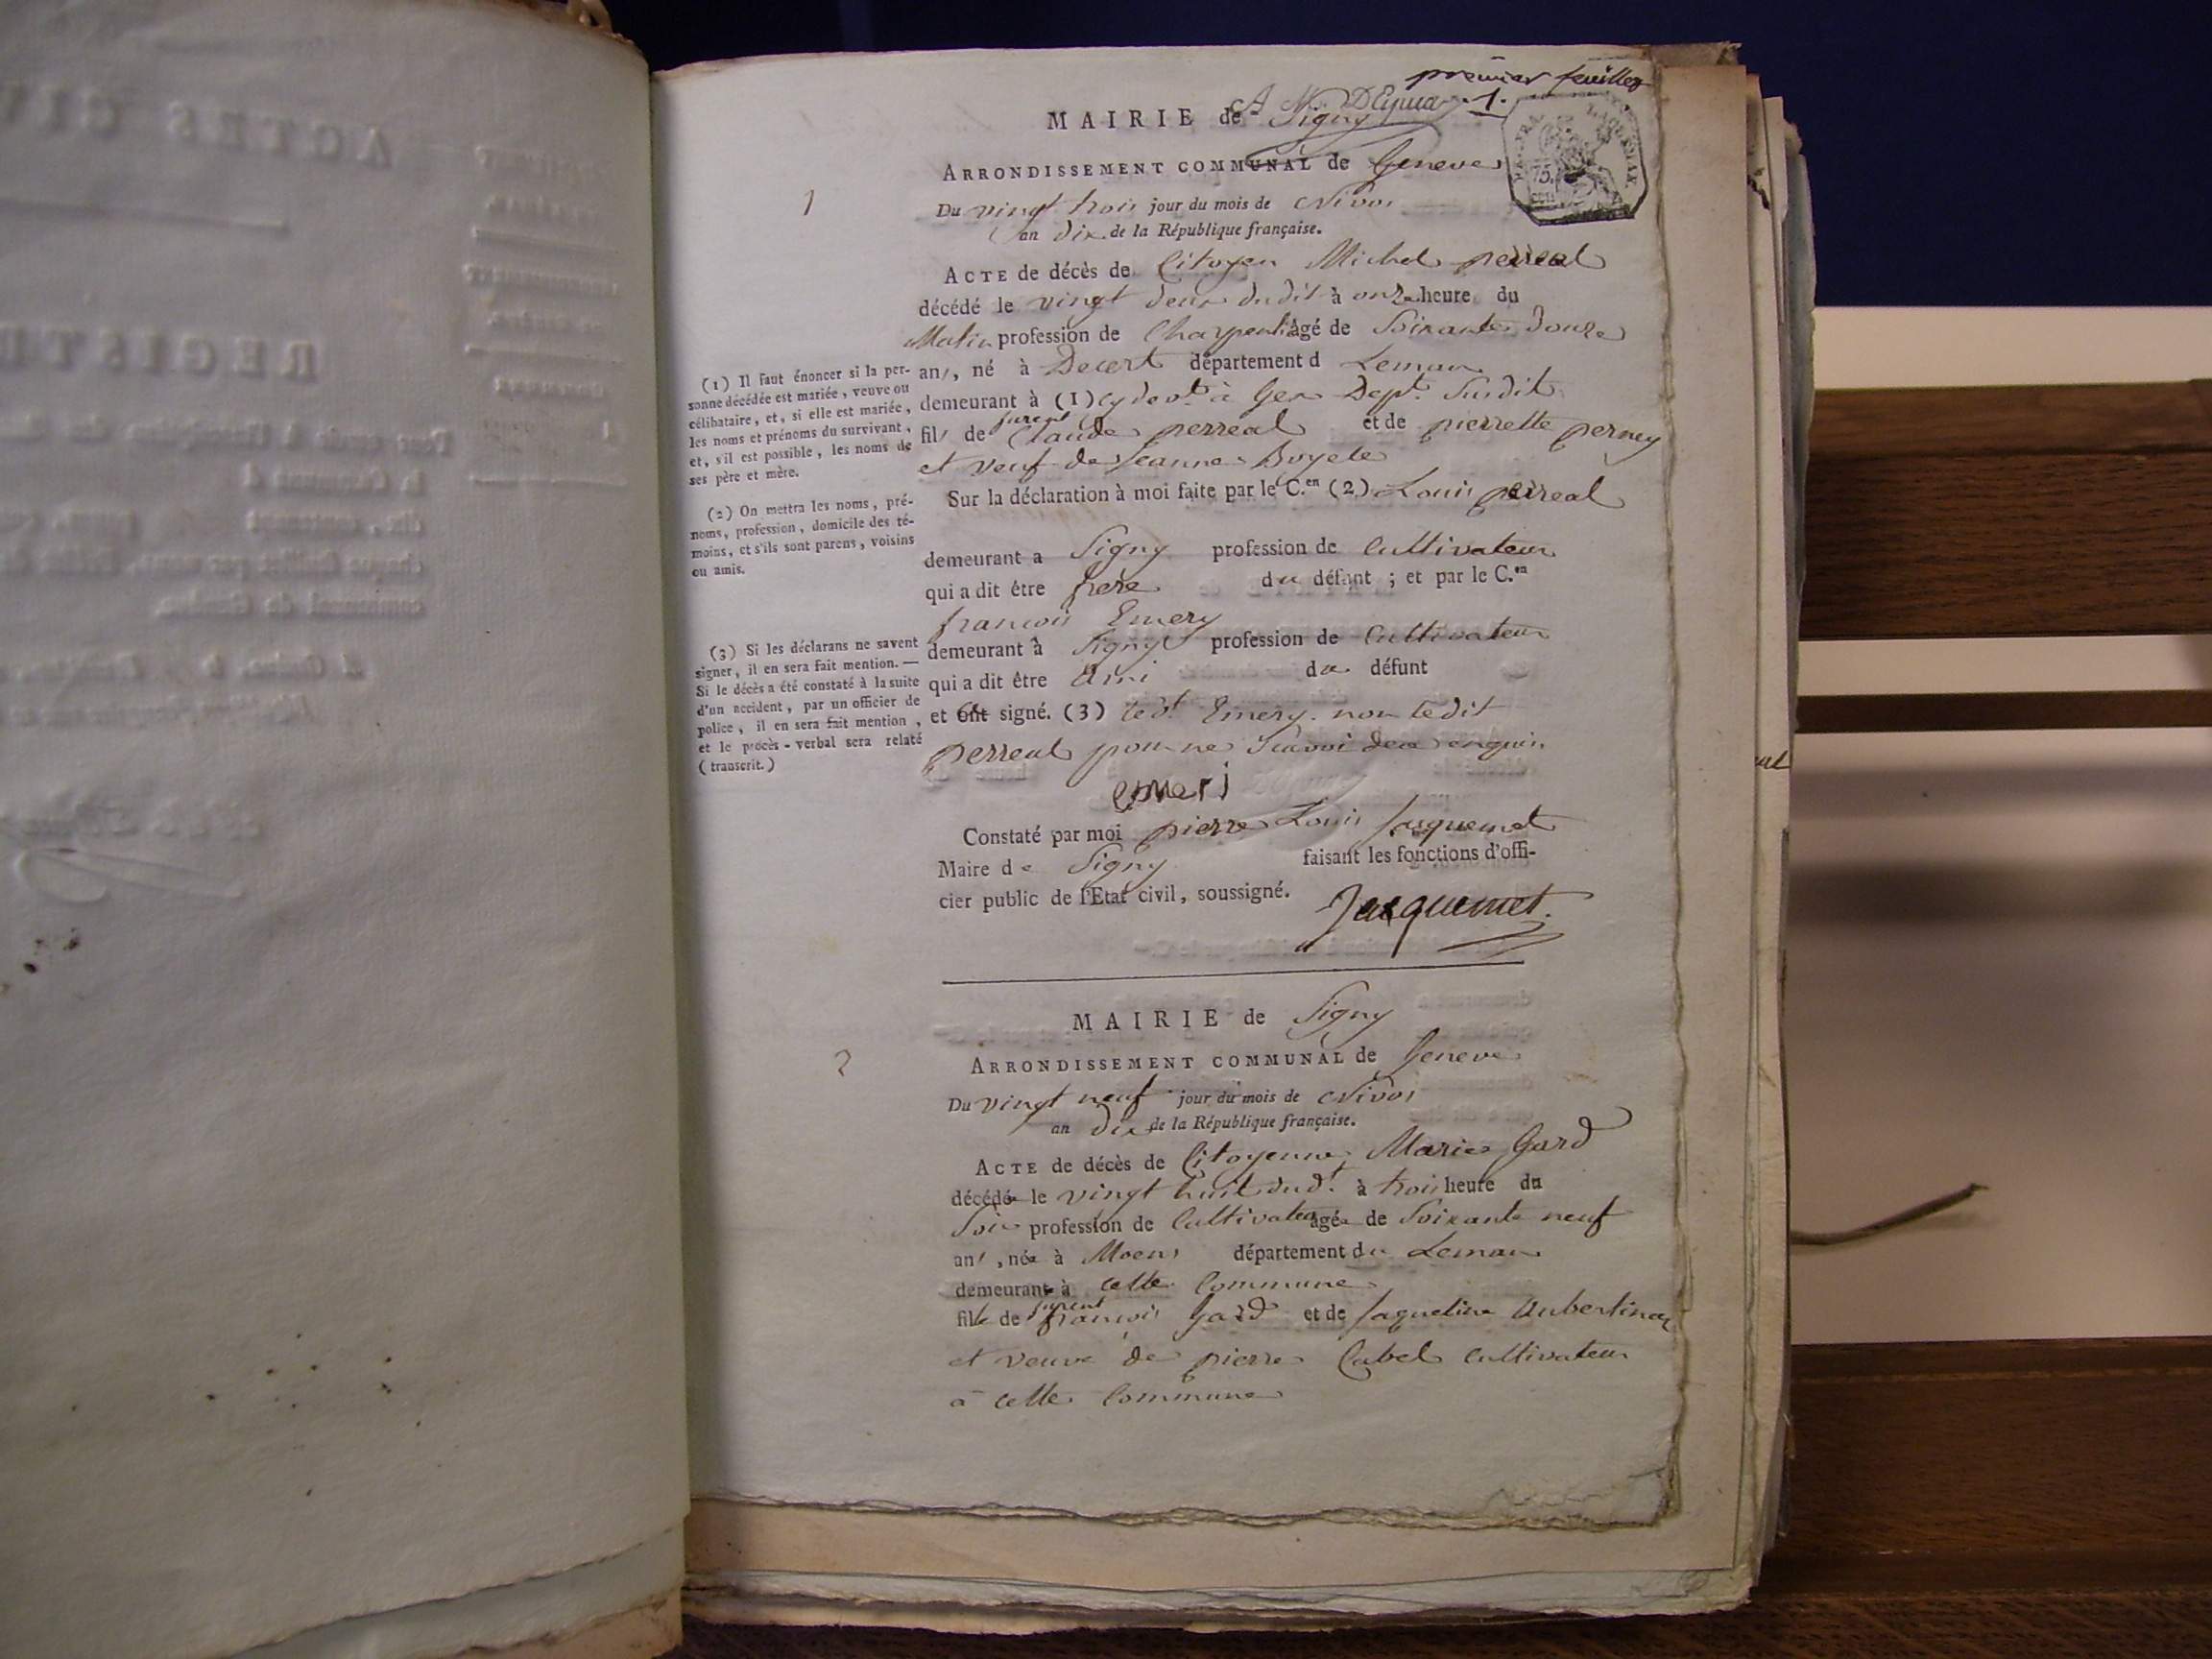 premier feuillet
1.
MAIRIE de Signy
ARRONDISSEMENT COMMUNAL de Geneve
1
Du vingt trois jour du mois de Nivos
an dix de la République française.
ACTE de décès de Citoyen Michel perreal
décédé le vingt deux dudit à onze heure du
Matin profession de Charpentié âgé de Soixante douze
ans, né à département d Leman
demeurant à (1) cy devt. à Gex Dept. Susdit
furent
fils de Claude perreal et de pierrette perney
et veuf de Jeanne
Sur la déclaration à moi faite par le C.en (2) Louis perreal
demeurant a Signy profession de Cultivateur
qui a dit être frere du défunt ; et par le C.en
francois Emery
demeurant à Signy profession de Cultivateur
qui a dit être Ami du défunt
et ont signé. (3) ledt. Emery non ledit
perreal pour ne Savoir de ce enquis
emeri
Constaté par moi pierre Louis Jacquemet
Maire de Signy faisant les fonctions d'offi-
cier public de l'Etat civil, soussigné.
Jacquemet
(1) Il faut énoncer si la per-
sonne décédée est mariée, veuve ou
célibataire, et, si elle est mariée,
les noms et prénoms du survivant,
et, s'il est possible, les noms de
ses père et mère.
(2) On mettra les noms, pré-
noms, profession, domicile des té-
moins, et s'ils sont parens, voisins
ou amis.
(3) Si les déclarans ne savent
signer, il en sera fait mention. —
Si le décès a été constaté à la suite
d'un accident, par un officier de
police, il en sera fait mention,
et le procès-verbal sera relaté
(transcrit.)
MAIRIE de Signy
2
ARRONDISSEMENT COMMUNAL de Geneve
Du vingt neuf jour du mois de Nivos
an dix de la République française.
ACTE de décès de Citoyenne Marie Gard
décédée le vingt huit dudt. à trois heure du
Soir profession de Cultivateur âgée de Soixante neuf
ans, née à Moens département du Leman
demeurante à cette Commune
furent
fille de francois Gard et de Jaqueline
et veuve de pierre Cabel Cultivateur
a cette Commune